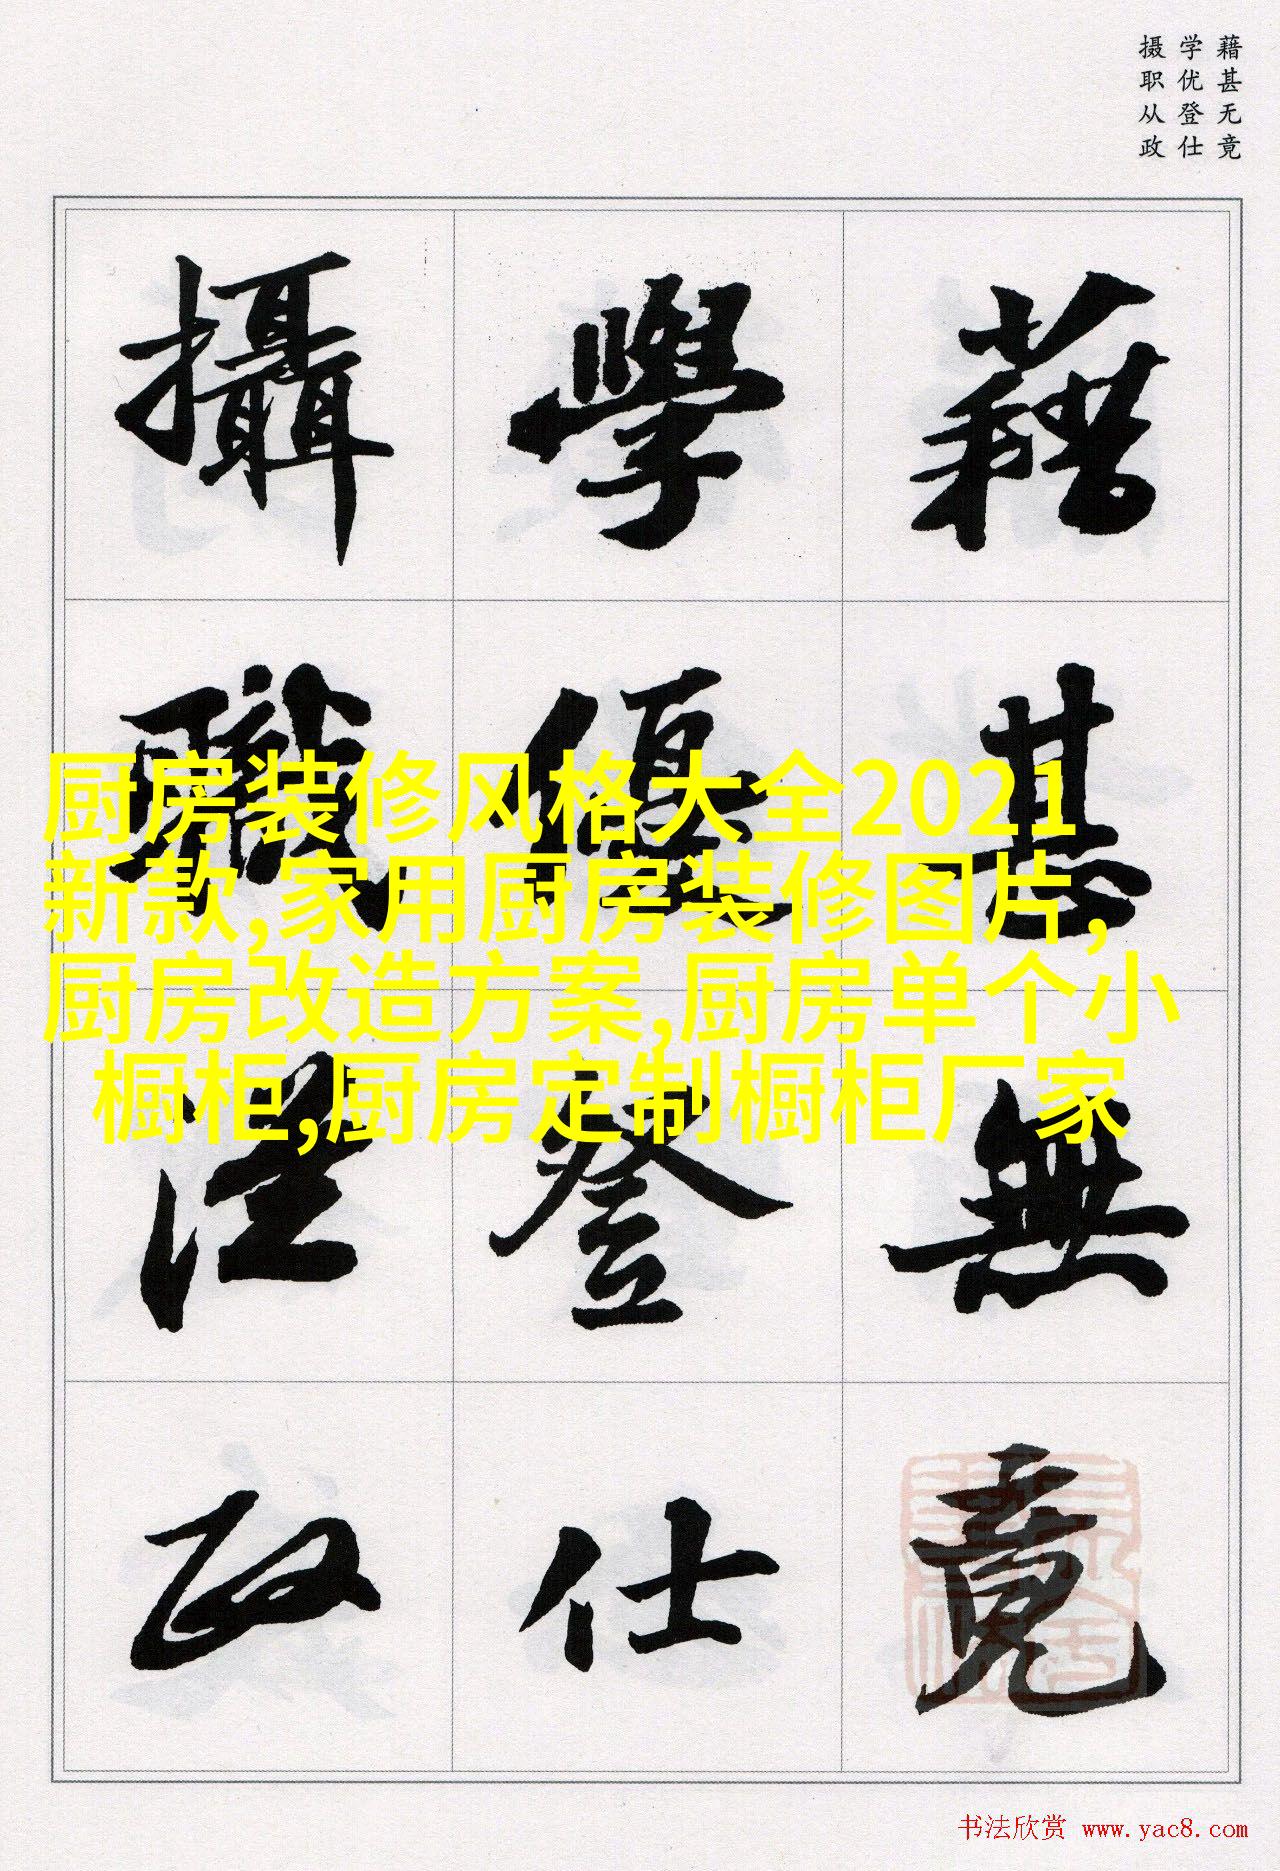 藉甚无竟
学优登仕
摄职从政
藉甚無竟
學優登仕
攝職從政
厨房装修风格大全2021
新款,家用厨房装修图片,
厨房改造方案,厨房单个小
橱柜,厨房定制橱柜厂家
书法欣赏 www.yac8.com